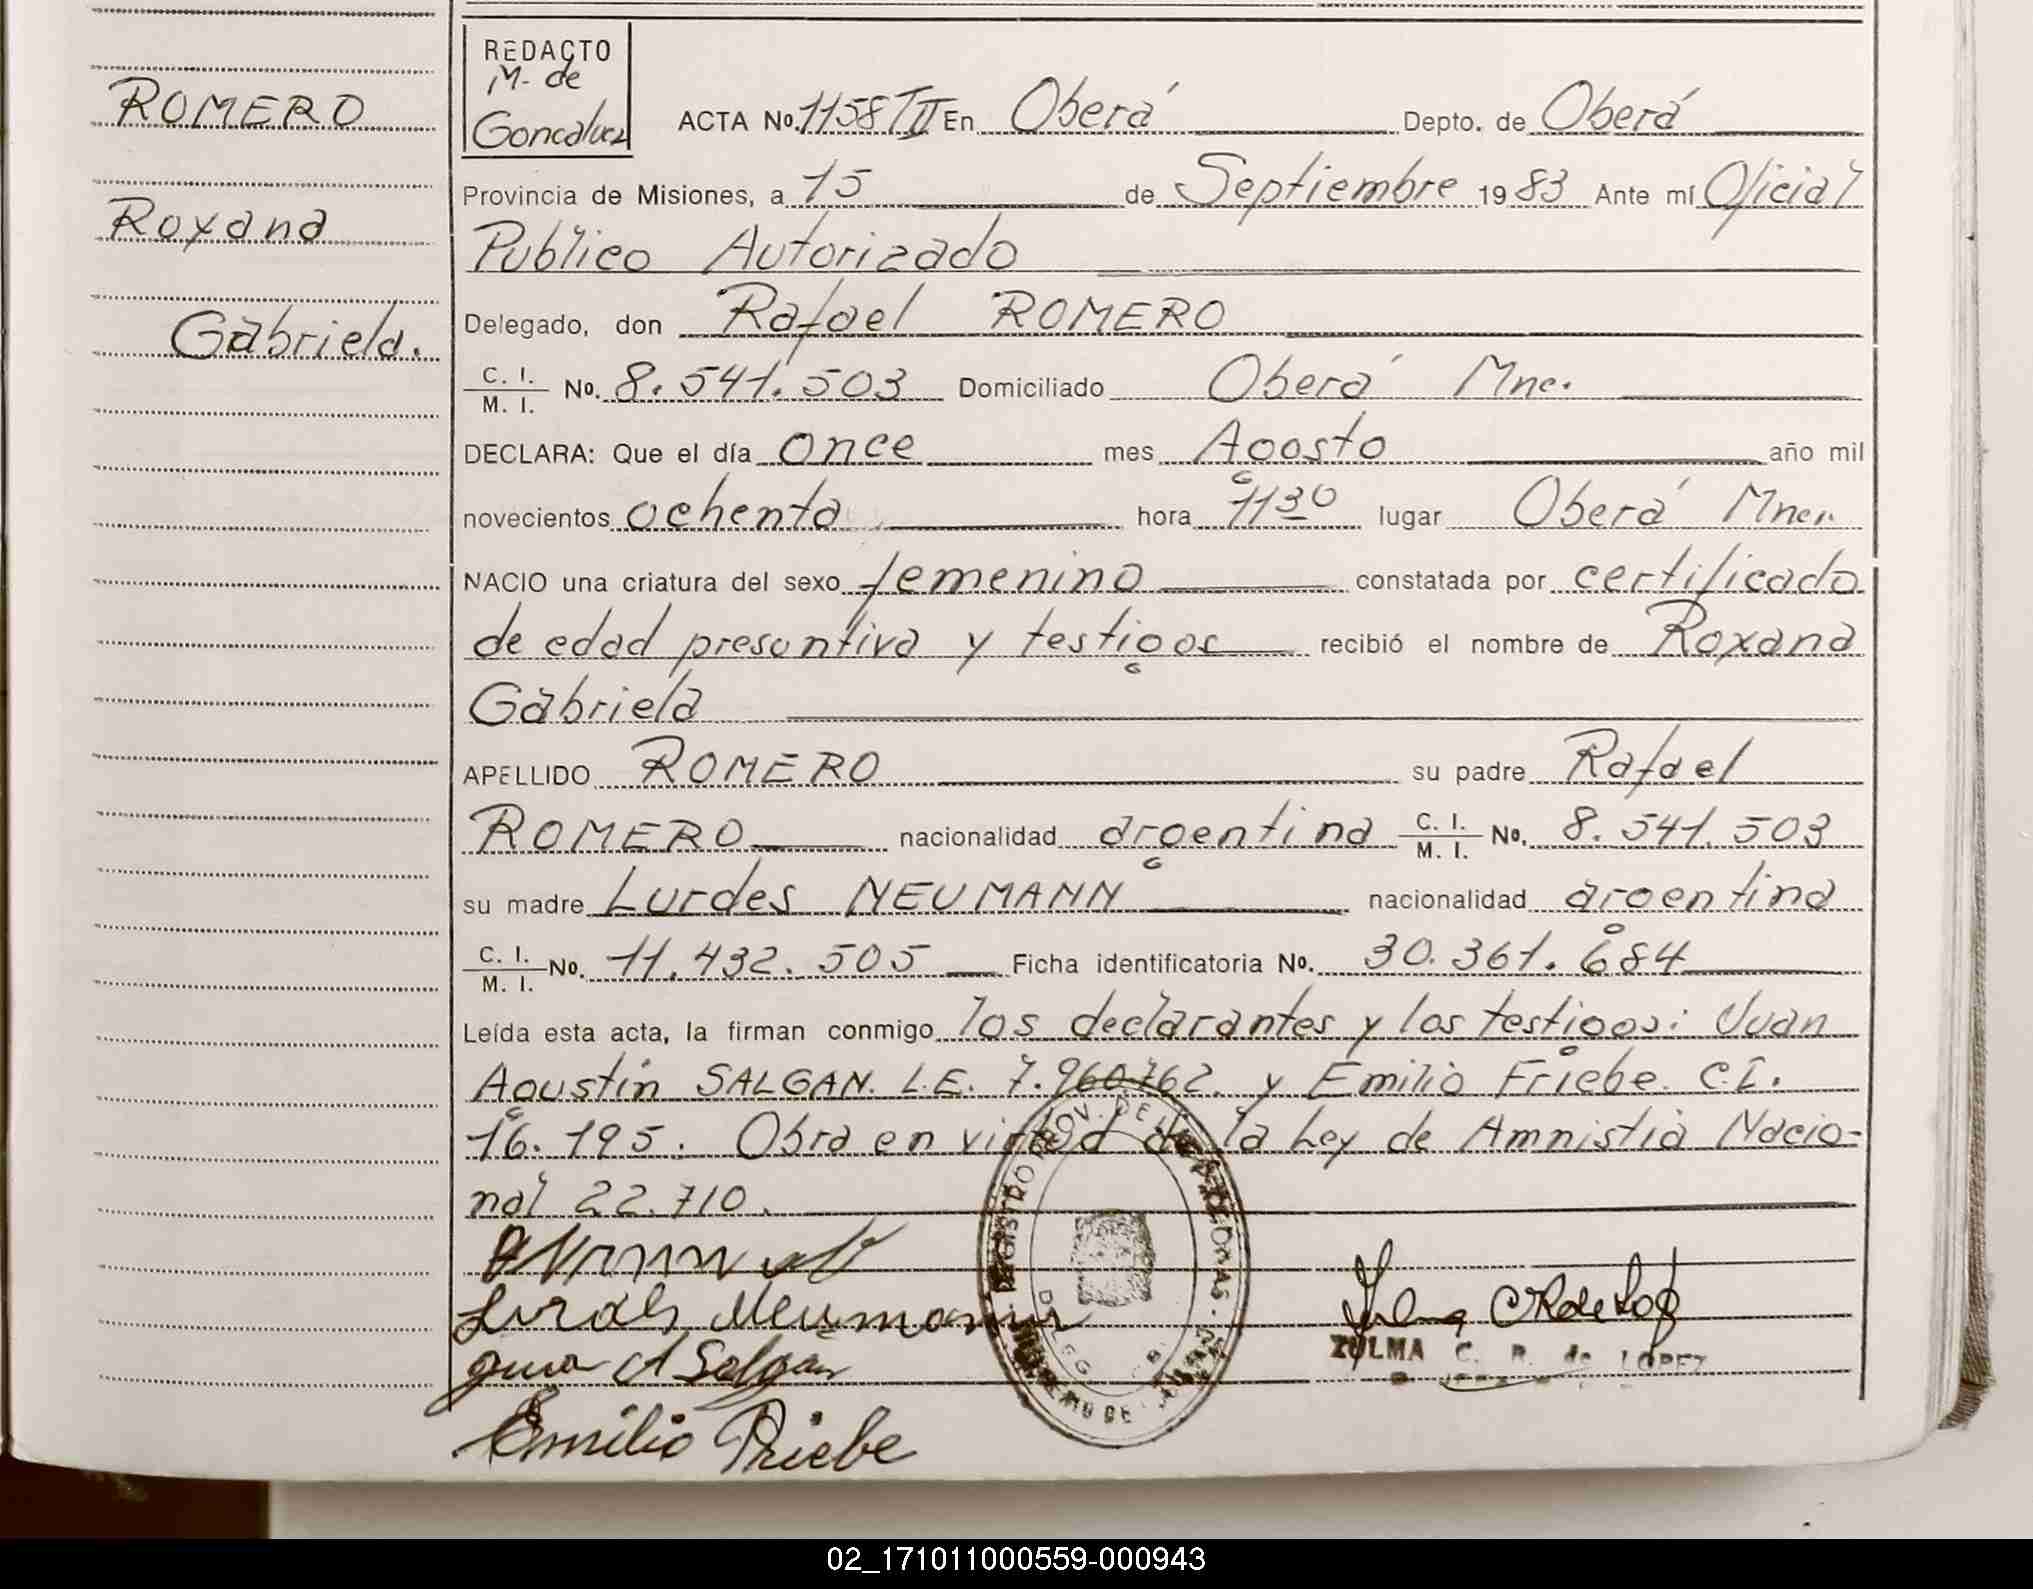 ROMERO
Roxana
Gabriela.
REDACTO
M. de
Goncalvez
ACTA No. 1158 TII En Oberá Depto. de Oberá
Provincia de Misiones, a 15 de Septiembre 1983 Ante mí Oficial
Publico Autorizado
Delegado, don Rafael ROMERO
C. I. / M. I. No. 8.541.503 Domiciliado Oberá Mnes.
DECLARA: Que el día once mes Agosto año mil
novecientos ochenta hora 1130 lugar Oberá Mnes.
NACIO una criatura del sexo femenino constatada por certificado
de edad presuntiva y testigos recibió el nombre de Roxana
Gabriela
APELLIDO ROMERO su padre Rafael
ROMERO nacionalidad argentina C. I. / M. I. No. 8.541.503
su madre Lurdes NEUMANN nacionalidad argentina
C. I. / M. I. No. 11.432.505 Ficha identificatoria No. 30.361.684
Leída esta acta, la firman conmigo los declarantes y los testigos: Juan
Agustín SALGAN. L.E. 7.960.762. y Emilio Friebe. C.I.
16.195. Obra en virtud de la Ley de Amnistia Nacio-
nal 22.710.
Lurdes Neumann
Juan A Salgan
Emilio Friebe
ZULMA C. R. de LOPEZ
REGISTRO PROV. DE LAS PERSONAS
02_171011000559-000943